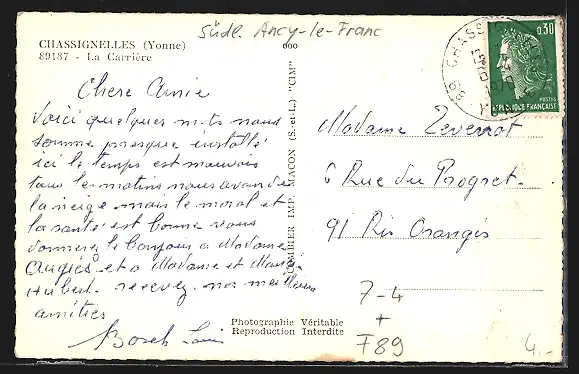 Südl. Ancy-le-Franc
CHASSIGNELLES (Yonne)
89137 - La Carrière
Chere Amie
Voici quelques mots nous
somme presque installé
ici le temps est mauvais
tous les matins nous avon de
la neige mais le moral et
la santé est bonne vous
donnerez le bonjour a Madame
et a Madame et
Hubert. recevez nos meilleurs
amitier
Bosch
COMBIER IMP. MACON (S.-et-L.) "CIM"
Photographie Véritable
Reproduction Interdite
89 CHASSIGNELLES
0,30
POSTES
REPUBLIQUE FRANÇAISE
Madame Zeverrot
6 Rue du Progret.
91 Ris Orangis
7-4
+
F89
4.-